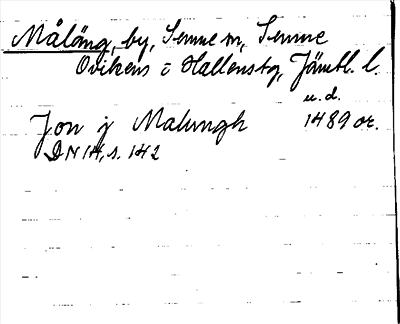 Målång, by, Sunne sn, Sunne
Ovikens o Hallens tg, Jämtl. l.
u. d.
Jon j Malungh 1489 or.
DN 14, s. 142